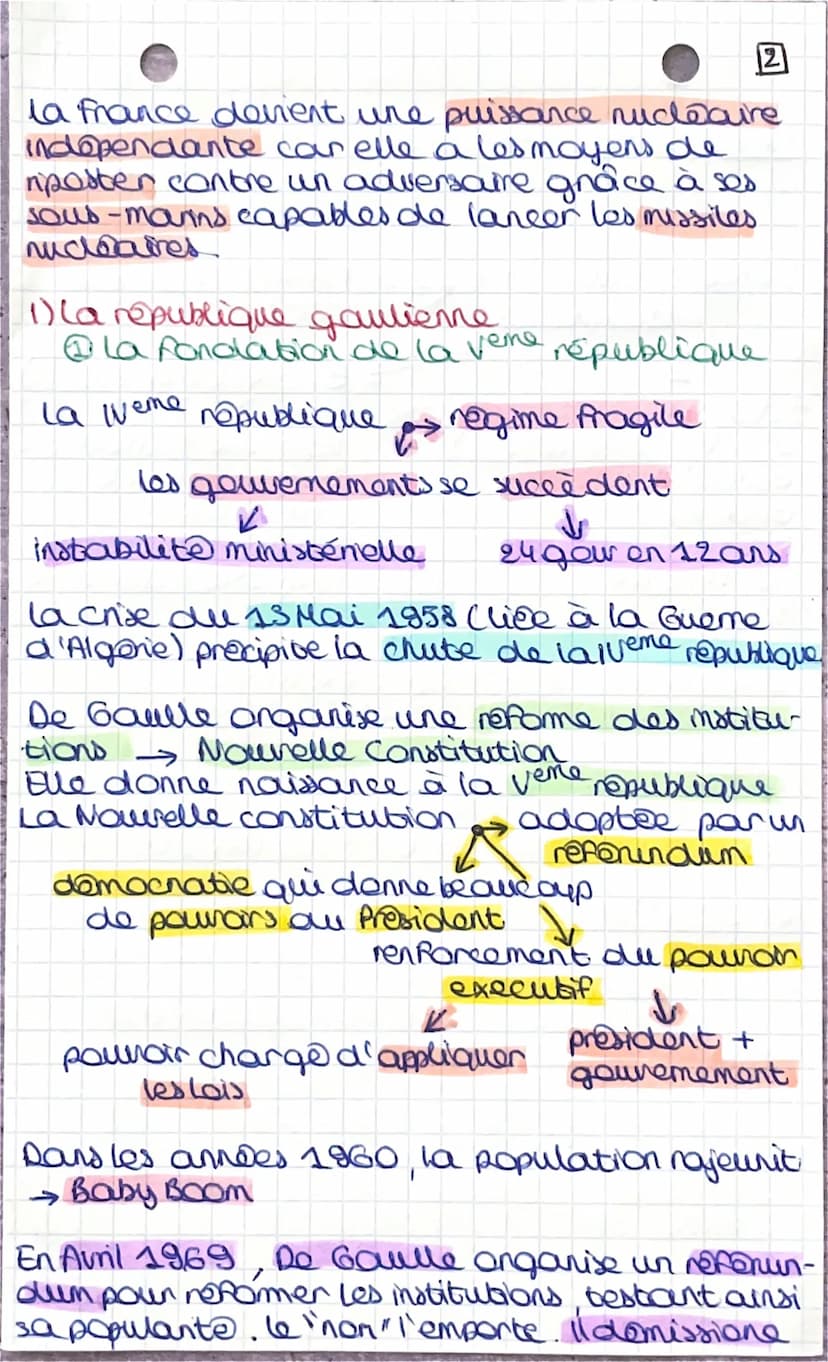 2
la France devient une puissance nucléaire
indépendante car elle a les moyens de
riposter contre un adversaire grâce à ses
sous-marins capables de lancer les missiles
nucléaires.
1) La république gaulienne
① La Fondation de la Vème république
La IVème république → régime fragile
les gouvernements se succèdent
instabilité ministérielle 24 gouv en 12 ans
La crise du 13 Mai 1958 (liée à la Guerre
d'Algérie) précipite la chute de la IVème république
De Gaulle organise une réforme des institu-
tions → Nouvelle Constitution
Elle donne naissance à la Vème république
La Nouvelle constitution → adoptée par un
référundum
démocratie qui donne beaucoup
de pouvoirs au Président
renforcement du pouvoir
executif
pouvoir chargé d'appliquer
les lois
président +
gouvernement
Dans les années 1960, la population rajeunit
→ Baby Boom
En Avril 1969, De Gaulle organise un référun-
dum pour réformer les institutions, testant ainsi
sa popularité. le "non" l'emporte. Il démissione